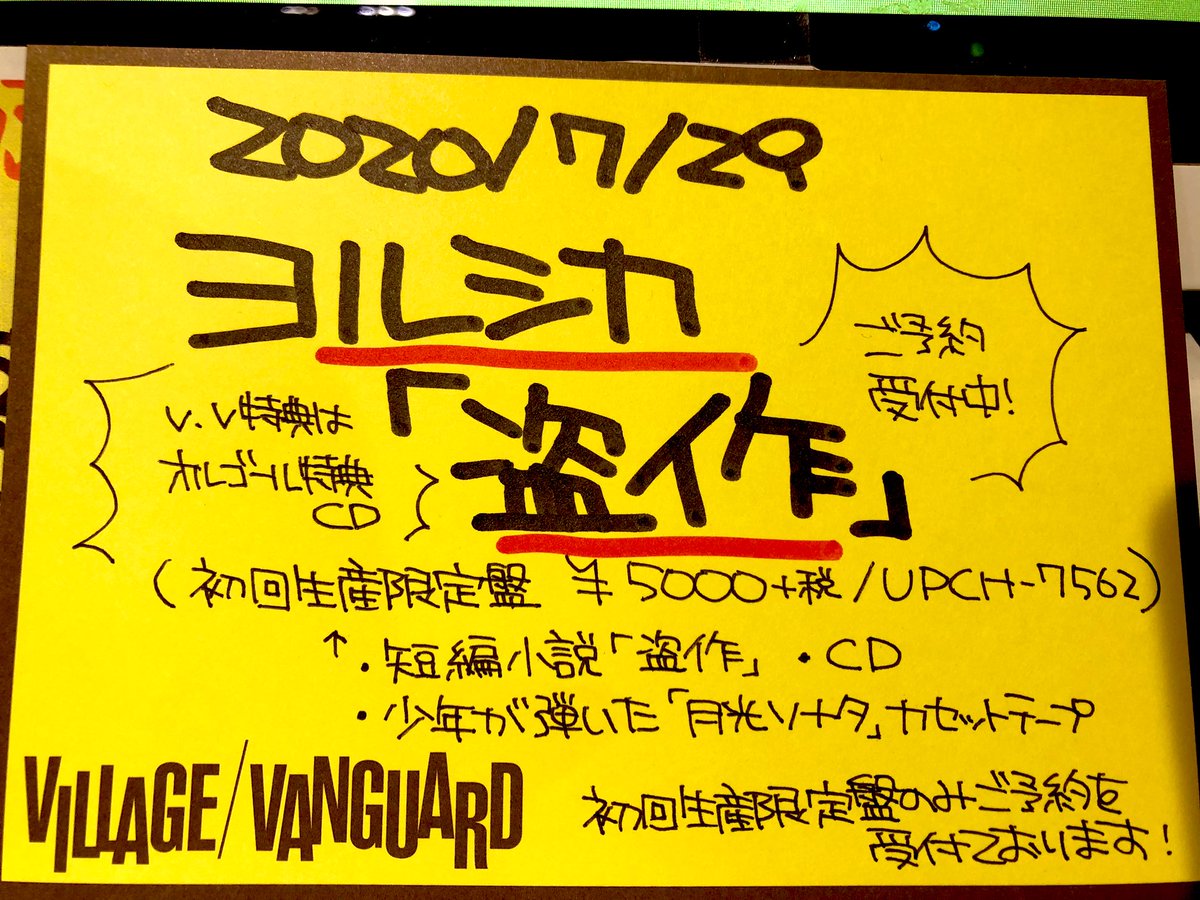 2020/7/29
ヨルシカ
「盗作」
ご予約
受付中!
V.V特典は
オルゴール特典
CD
(初回生産限定盤 ¥5000+税/UPCH-7562)
↑・短編小説「盗作」・CD
・少年が弾いた「月光ソナタ」カセットテープ
VILLAGE/VANGUARD
初回生産限定盤のみご予約を
受付ております!